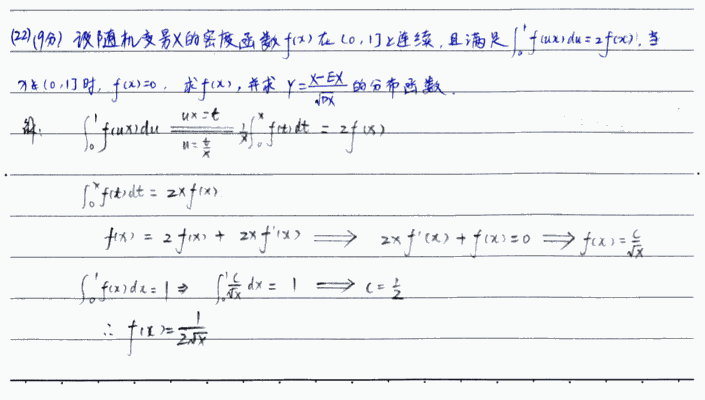 (22)(9分) 设随机变量X的密度函数f(x)在(0,1]上连续,且满足∫₀¹f(ux)du=2f(x),当
x∉(0,1]时,f(x)=0. 求f(x),并求Y=(X-EX)/√DX的分布函数.
解: ∫₀¹f(ux)du ux=t u=t/x 1/x∫₀ˣf(t)dt = 2f(x)
∫₀ˣf(t)dt = 2xf(x)
f(x) = 2f(x) + 2xf'(x) ⟹ 2xf'(x)+f(x)=0 ⟹ f(x)=C/√x
∫₀¹f(x)dx=1 ⇒ ∫₀¹C/√x dx = 1 ⟹ C=1/2
∴ f(x)=1/(2√x)